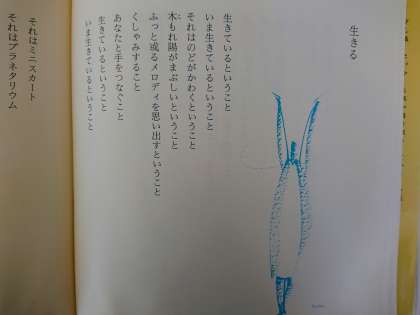 生きる
生きているということ
いま生きているということ
それはのどがかわくということ
木もれ陽がまぶしいということ
ふっと或るメロディを思い出すということ
くしゃみすること
あなたと手をつなぐこと
生きているということ
いま生きているということ
それはミニスカート
それはプラネタリウム